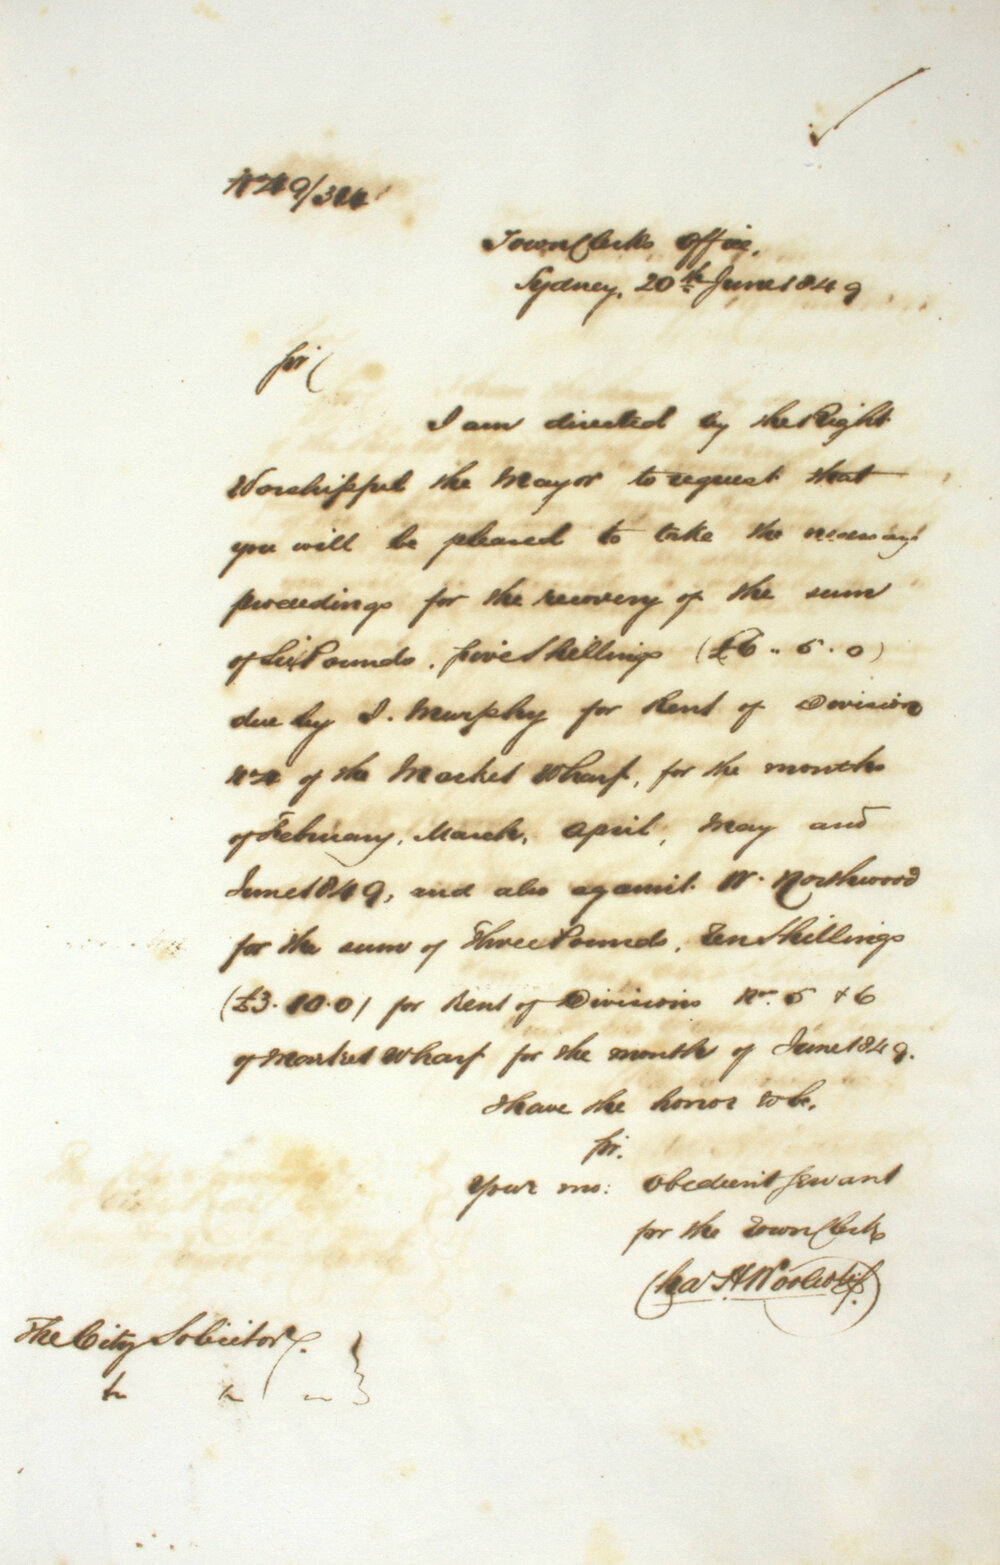 Town Clerks Office,
Sydney, 20th June 1849
Sir
I am directed by the Right
Worshipful the Mayor to request that
you will be pleased to take the necessary
proceedings for the recovery of the sum
of Six Pounds, five Shillings (£6..5.0)
due by J. Murphy for Rent of Division
of the Market Wharf, for the months
of February, March, April, May and
June 1849, and also against W. Northwood
for the sum of Three Pounds, Ten Shillings
(£3.10.0) for Rent of Divisions No. 5 & 6
of Market Wharf for the month of June 1849.
I have the honor to be,
Sir,
Your mo: Obedient Servant
for the Town Clerk
Chas H Woolcott
The City Solicitor